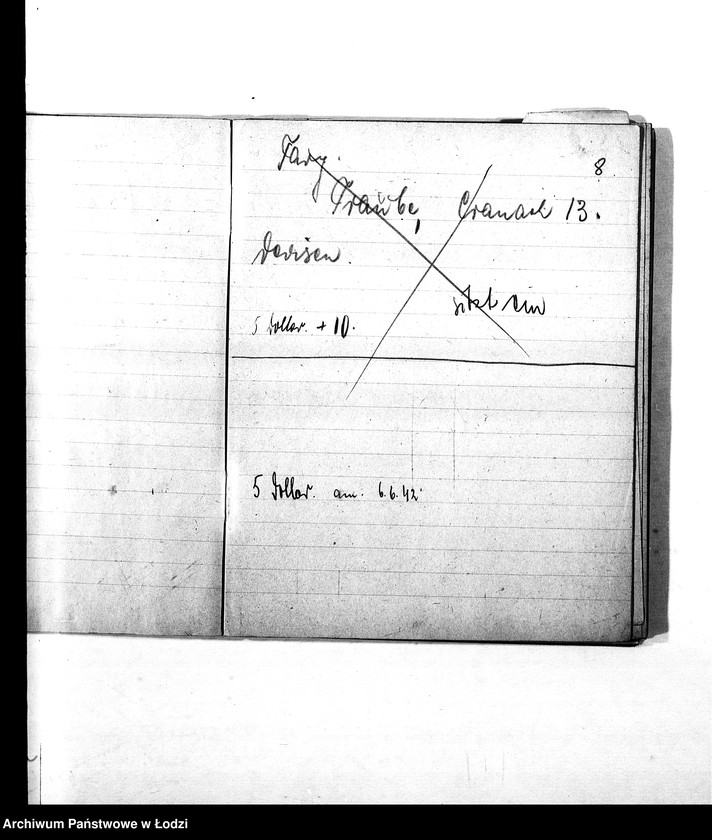 8
Farg.
Traube, Cranach 13.
Devisen.
sitzt ein
5 Dollar. + 10.
5 Dollar. am. 6.6.42
Archiwum Państwowe w Łodzi